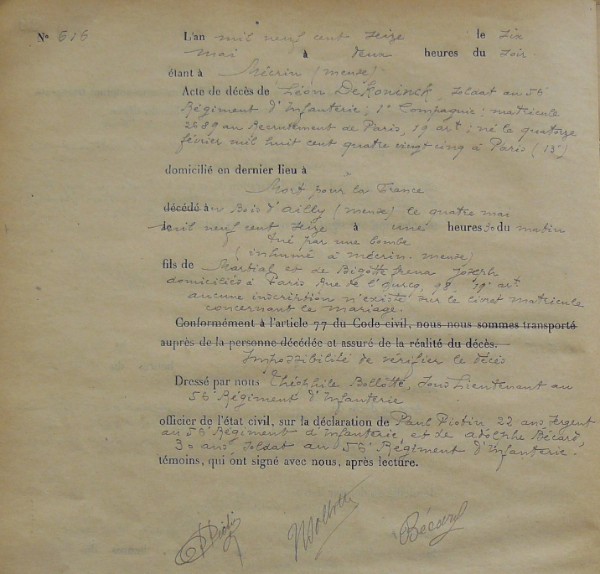 N° 616 L'an mil neuf cent seize le six
mai à deux heures du soir
étant à Mécrin (meuse)
Acte de décès de Léon Dekoninck, soldat au 56e
Régiment d'Infanterie, 1e Compagnie; matricule
2289 au Recrutement de Paris, 19 art; né le quatorze
février mil huit cent quatre vingt cinq à Paris (13e)
domicilié en dernier lieu à
Mort pour la France
décédé au Bois d'Ailly (meuse) le quatre mai
mil neuf cent seize à une heures 30 du matin
tué par une bombe
(inhumé à mécrin. meuse)
fils de Martial et de Bigotte Joseph
domiciliés à Paris Rue de l'ourcq, 98. 19e art
aucune inscription n'existe sur le livret matricule
concernant le mariage.
Conformément à l'article 77 du Code civil, nous nous sommes transporté
auprès de la personne décédée et assuré de la réalité du décès.
Impossibilité de vérifier le décès
Dressé par nous Théophile Bollotte, Sous Lieutenant au
56e Régiment d'Infanterie
officier de l'état civil, sur la déclaration de Paul Piotin, 22 ans, sergent
au 56e Régiment d'infanterie, et de adolphe Bécard,
30 ans soldat au 56e Régiment d'Infanterie.
témoins, qui ont signé avec nous, après lecture.